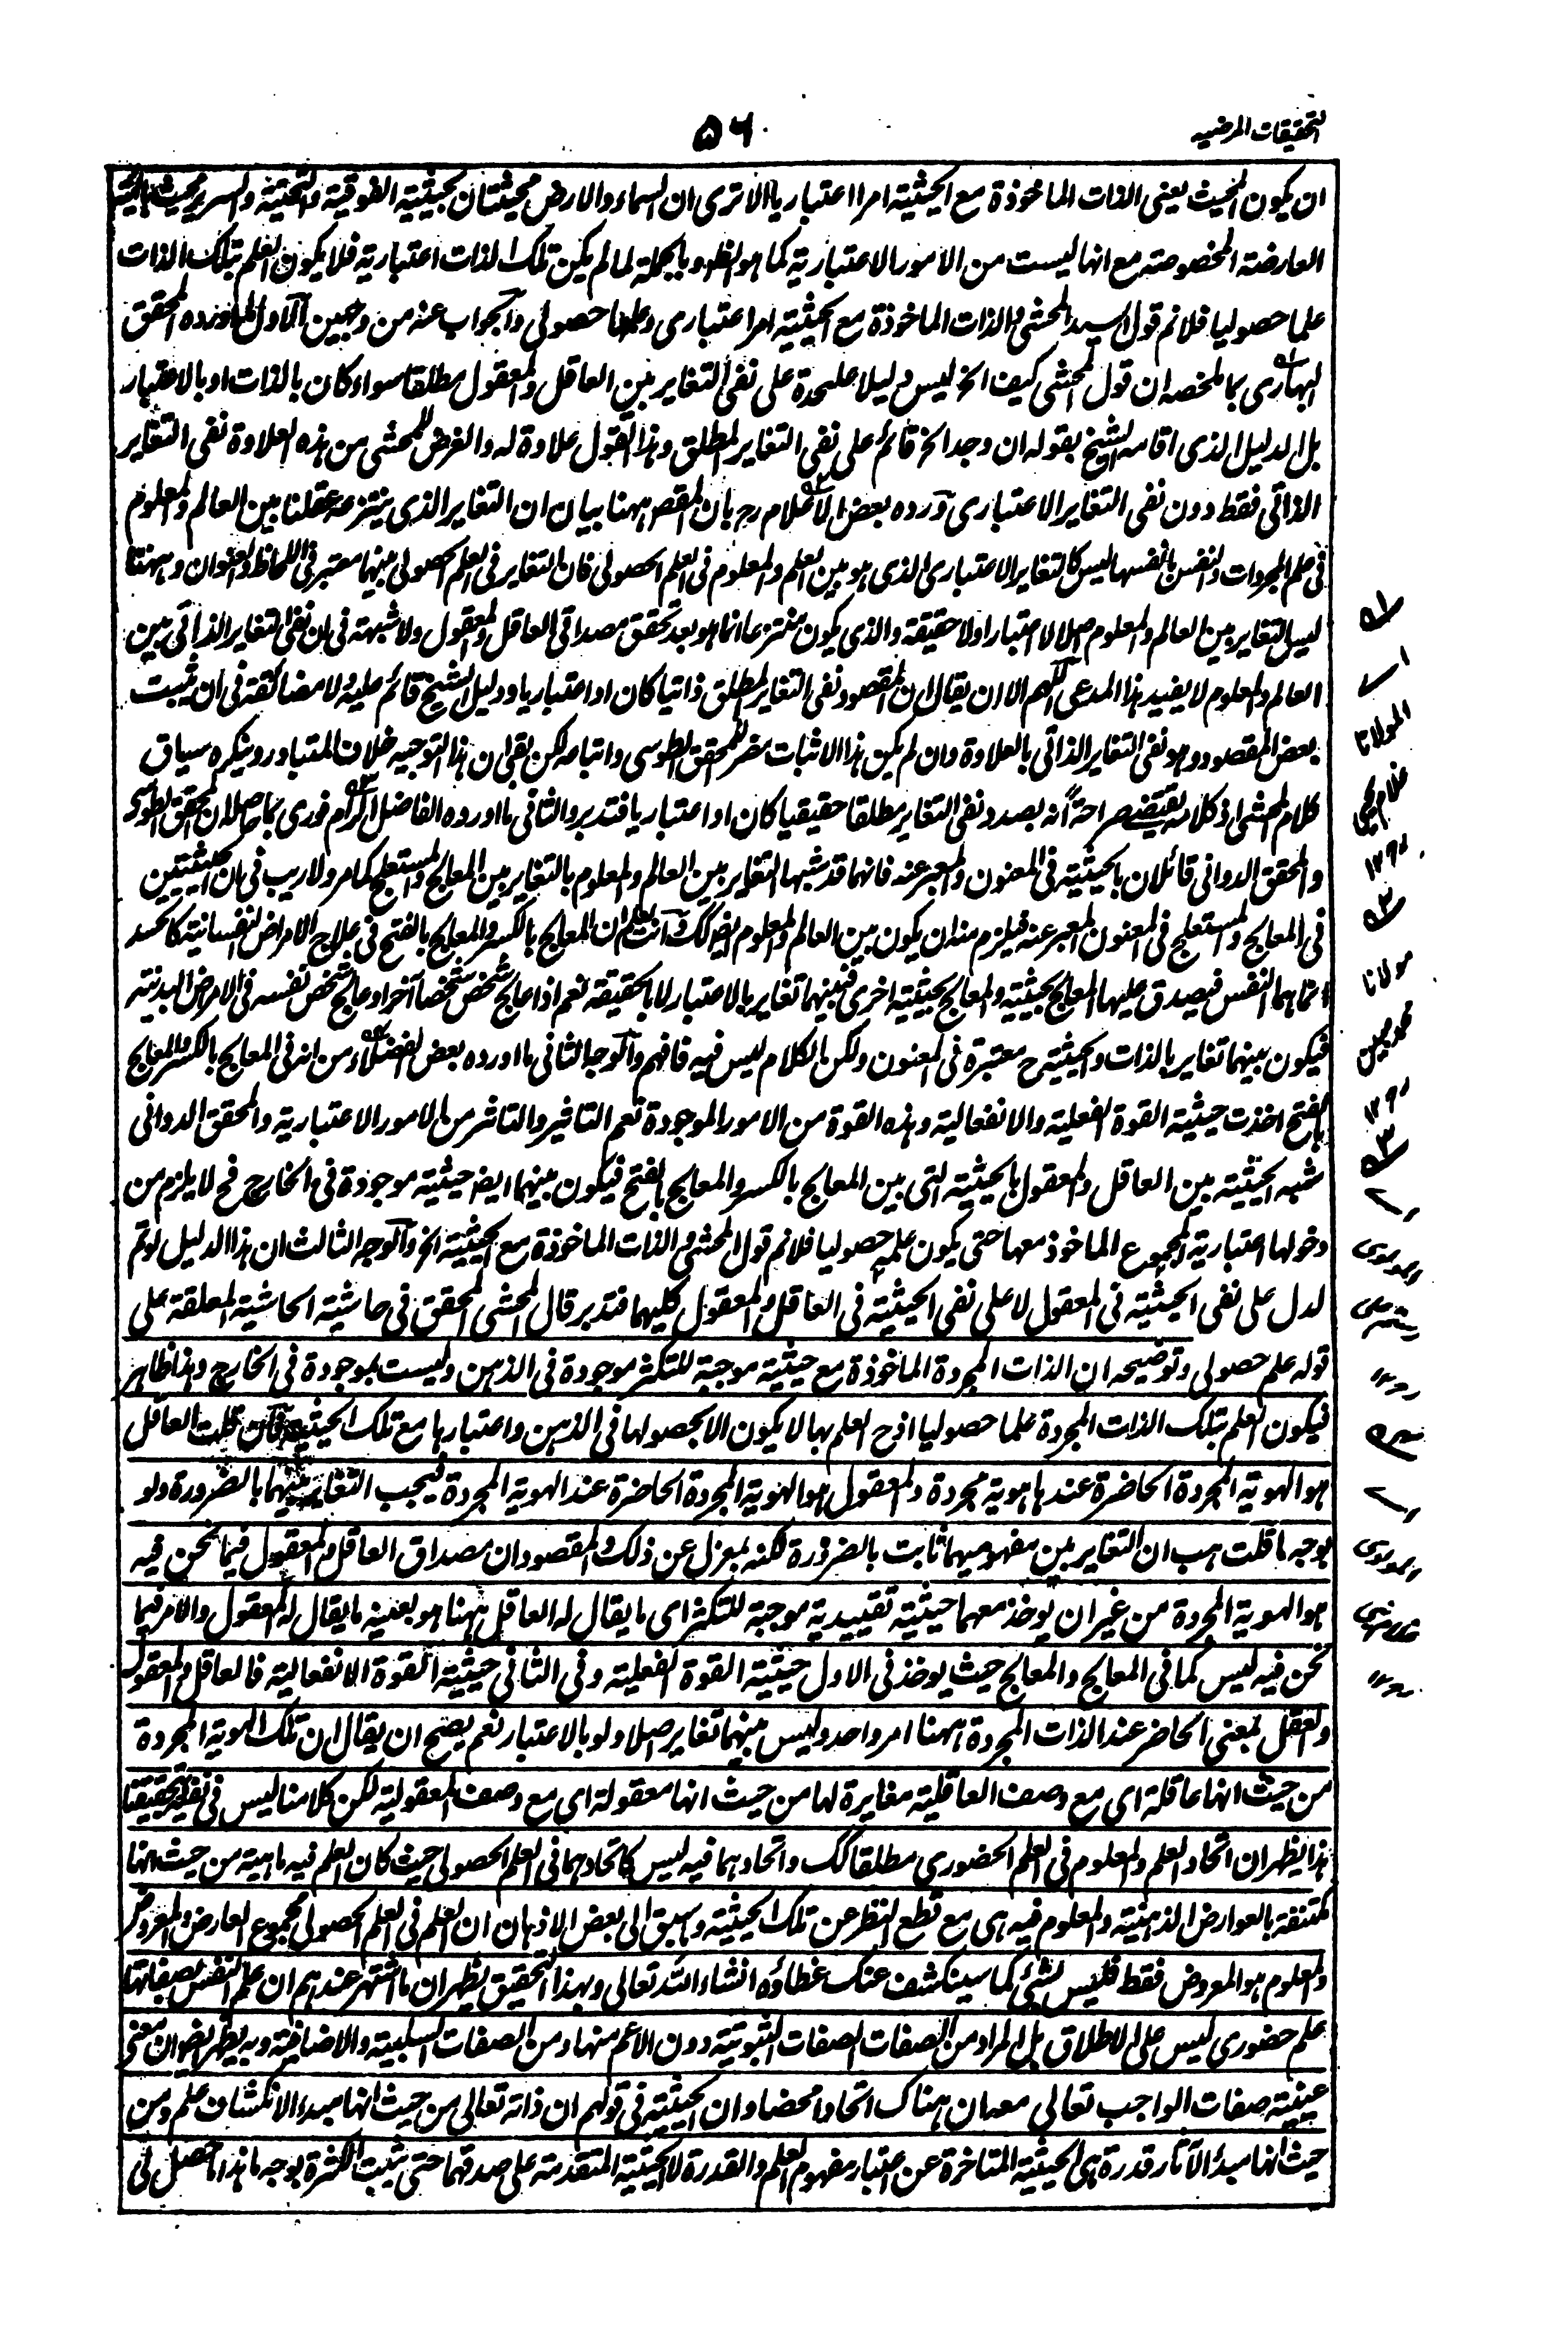 التحقيقات المرضيه
۵۶
ان يكون المحيث يعنى الذات الماخوذة مع الحيثية امرا اعتباريا الا ترى ان السماء والارض محيثتان بحيثية الفوقية والتحتية والسرير محيث بالحيثية
العارضة المخصوصة مع انها ليست من الامور الاعتبارية كما هو الظاهر وبالجملة لما لم يكن تلك الذات اعتبارية فلا يكون العلم بتلك الذات
علما حصوليا فلا نم قول السيد المحشى والذات الماخوذة مع الحيثية امر اعتبارى وعلمها حصولى والجواب عنه من وجهين الاول ما اورده المحقق
البهارى بما ملخصه ان قول المحشى كيف الخ ليس دليلا عليحدة على نفى التغاير بين العاقل والمعقول مطلقا سواء كان بالذات او بالاعتبار
بل الدليل الذى اقامه الشيخ بقوله ان وجد الخ قائم على نفى التغاير المطلق وهذا القول علاوة له والغرض للمحشى من هذه العلاوة نفى التغاير
الذاتى فقط دون نفى التغاير الاعتبارى ورده بعض الاعلام رح بان المقص ههنا بيان ان التغاير الذى ينتزعه عقلنا بين العالم والمعلوم
فى علم المجردات والنفس بانفسها ليس كالتغاير الاعتبارى الذى هو بين العلم والمعلوم فى العلم الحصولى فان التغاير فى العلم الحصولى بينهما معتبر فى اللحاظ والعنوان وههنا
ليس التغاير بين العالم والمعلوم اصلا لا اعتبارا ولا حقيقة والذى يكون منتزعا انما هو بعد تحقق مصداقى العاقل والمعقول ولا شبهة فى ان نفى التغاير الذاتى بين
العالم والمعلوم لا يفيد هذا المدعى اللهم الا ان يقال ان المقصود نفى التغاير المطلق ذاتيا كان او اعتباريا ودليل الشيخ قائم عليه ولا مضائقة فى ان ثبت
بعض المقصود وهو نفى التغاير الذاتى بالعلاوة وان لم يكن هذا الاثبات مضر للمحقق الطوسى واتباعه لكن بقى ان هذا التوجيه خلاف المتبادر وينكره سياق
كلام المحشى اذ كلامه يقتضى صراحة انه بصدد نفى التغاير مطلقا حقيقيا كان او اعتباريا فتدبر والثانى ما اورده الفاضل الرامفورى بما حاصله ان المحقق الطوسى
والمحقق الدوانى قائلان بالحيثية فى المعنون والمعبر عنه فانهما قد شبها التغاير بين العالم والمعلوم بالتغاير بين المعالج والمستعلج كما مر ولا ريب فى ان الحيثيتين
فى المعالج والمستعلج فى المعنون المعبر عنه فيلزم منه ان يكون بين العالم والمعلوم ايضا كك وانت تعلم ان المعالج بالكسر والمعالج بالفتح فى علاج الامراض النفسانية كالحسد
انما هما النفس فيصدق عليها المعالج بحيثية والمعالج بحيثية اخرى فبينهما تغاير بالاعتبار لا بالحقيقة نعم اذا عالج شخص شخصا آخر او عالج شخص نفسه فى الامراض البدنية
فيكون بينهما تغاير بالذات والحيثية ح معتبرة فى المعنون ولكن الكلام ليس فيه فافهم والوجه الثانى ما اورده بعض الفضلاء من انه فى المعالج بالكسر والمعالج
بالفتح اخذت حيثية القوة الفعلية والانفعالية وهذه القوة من الامور الموجودة نعم التاثير والتاثر من الامور الاعتبارية والمحقق الدوانى
شبه الحيثية بين العاقل والمعقول بالحيثية التى بين المعالج بالكسر والمعالج بالفتح فيكون بينهما ايضا حيثية موجودة فى الخارج فح لا يلزم من
دخولها اعتبارية المجموع الماخوذ معها حتى يكون علمه حصوليا فلا نم قول المحشى والذات الماخوذة مع الحيثية الخ والوجه الثالث ان هذا الدليل لو تم
لدل على نفى الحيثية فى المعقول لا على نفى الحيثية فى العاقل والمعقول كليهما فتدبر قال المحشى المحقق فى حاشية الحاشية المعلقة على
قوله علم حصولى وتوضيحه ان الذات المجردة الماخوذة مع حيثية موجبة للتكثر موجودة فى الذهن وليست بموجودة فى الخارج وهذا ظاهر
فيكون العلم بتلك الذات المجردة علما حصوليا اذ ح العلم بها لا يكون الا بحصولها فى الذهن واعتبارها مع تلك الحيثية فان قلت العاقل
هو الهوية المجردة الحاضرة عندها هوية مجردة والمعقول هو الهوية المجردة الحاضرة عند الهوية المجردة فيجب التغاير بينهما بالضرورة ولو
بوجه ما قلت هب ان التغاير بين مفهوميهما ثابت بالضرورة لكنه بمعزل عن ذلك والمقصود ان مصداق العاقل والمعقول فيما نحن فيه
هو الهوية المجردة من غير ان يوخذ معهما حيثية تقييدية موجبة للتكثر اى ما يقال له العاقل ههنا هو بعينه ما يقال له المعقول والامر فيما
نحن فيه ليس كما فى المعالج والمعالج حيث يوخذ فى الاول حيثية القوة الفعلية وفى الثانى حيثية القوة الانفعالية فالعاقل والمعقول
والعقل بمعنى الحاضر عند الذات المجردة ههنا امر واحد وليس بينهما تغاير اصلا ولو بالاعتبار نعم يصح ان يقال ان تلك الهوية المجردة
من حيث انها عاقلة اى مع وصف العاقلية مغايرة لها من حيث انها معقولة اى مع وصف المعقولية لكن كلامنا ليس فى نفيه وبتحقيقنا
هذا يظهر ان اتحاد العلم والمعلوم فى العلم الحضورى مطلقا كك واتحادهما فيه ليس كاتحادهما فى العلم الحصولى حيث كان العلم فيه ماهية من حيث انها
مكتنفة بالعوارض الذهنية والمعلوم فيه هى مع قطع النظر عن تلك الحيثية وسبق الى بعض الاذهان ان العلم فى العلم الحصولى مجموع العارض والمعروض
والمعلوم هو المعروض فقط فليس بشئ كما سينكشف عنك غطاؤه انشاء الله تعالى وبهذا التحقيق يظهر ان ما اشتهر عندهم ان علم النفس بصفاتها
علم حضورى ليس على الاطلاق بل المراد من الصفات الصفات الثبوتية دون الاعم منها ومن الصفات السلبية والاضافية وبه يظهر ايضا ان معنى
عينية صفات الواجب تعالى معه ان هناك اتحادا محضا وان الحيثية فى قولهم ان ذاته تعالى من حيث انها مبدء الانكشاف علم ومن
حيث انها مبدء الآثار قدرة هى الحيثية المتاخرة عن اعتبار مفهوم العلم والقدرة لا الحيثية المتقدمة على صدقهما حتى يثبت الكثرة بوجه ما هذا ما حصل لى
مولانا